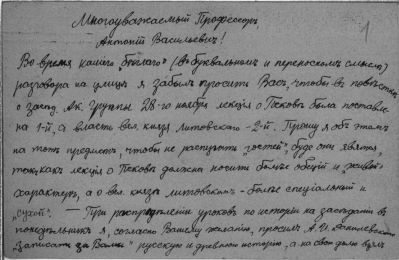 Многоуважаемый Профессоръ
1
Антонiй Васильевичъ!
Во время нашего "бѣглаго" (въ буквальномъ и переносномъ смыслѣ)
разговора на улицѣ я забылъ просить Васъ, чтобы въ повѣсткѣ
о засѣд. Ак. Группы 28-го ноября лекцiя о Псковѣ была поставле-
на 1-й, а власть вел. князя литовскаго - 2-й. Прошу я объ этомъ
на тотъ предметъ, чтобы не распугать "гостей", буде они явятся,
такъ какъ лекцiя о Псковѣ должна носить болѣе общiй и "живой"
характеръ, а о вел. князѣ литовскомъ - болѣе спецiальный и
"сухой". — При распредѣленiи уроковъ по исторiи на засѣданiи въ
понедѣльникъ я, согласно Вашему желанiю, просилъ А. И.
"записать за Вами" русскую и древнюю исторiю, а на свою долю взялъ